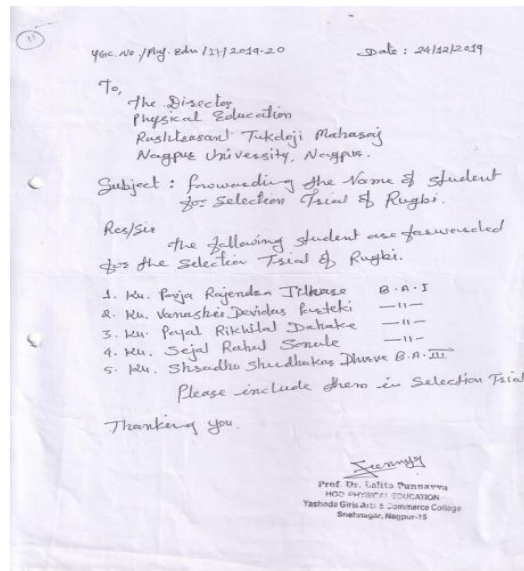 11
YGC. No./Phy. Edu /27/2019-20 Date : 24/12/2019
To,
The Director
Physical Education
Rashtrasant Tukdoji Maharaj
Nagpur University, Nagpur.
Subject : forwarding the Name of student
for Selection Trial of Rugbi.
Res/Sir
The following student are forwarded
for the Selection Trial of Rugbi.
1. Ku. Pooja Rajendra B.A-I
2. Ku. Vanashri Devidas —11—
3. Ku. Payal Rikhilal Dahake —11—
4. Ku. Sejal Rahul Sonule —11—
5. Ku. Shradha Shudhakar Dhurve B.A-III
Please include them in Selection Trial
Thanking you.
Prof. Dr. Lalita Punnavva
HOD PHYSICAL EDUCATION
Yashoda Girls Arts & Commerce College
Snehnagar, Nagpur-15